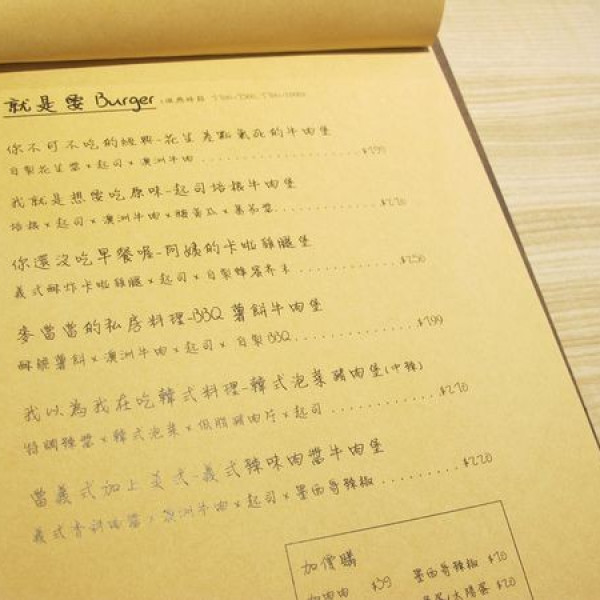 就是要 Burger
你不可不吃的經典-花生差點氣死的牛肉堡
自製花生醬x起司x澳洲牛肉 .................. $199
我就是想要吃原味-起司培根牛肉堡
培根x起司x澳洲牛肉x酸黃瓜x蕃茄醬............. $210
你還沒吃早餐喔-阿姨的卡啦雞腿堡
義式酥炸卡啦雞腿x起司x自製蜂蜜芥末 ............. $250
麥當當的私房料理-BBQ薯餅牛肉堡
酥脆薯餅x澳洲牛肉x起司x自製BBQ............. $199
我以為我在吃韓式料理-韓式泡菜豬肉堡(中辣)
特調辣醬x韓式泡菜x低脂豬肉片x起司 ............ $210
當義式加上美式-義式辣味肉醬牛肉堡
義式香料肉醬x澳洲牛肉x起司x墨西哥辣椒 ......... $220
加價購
墨西哥辣椒 $10
$39
太陽蛋 $20